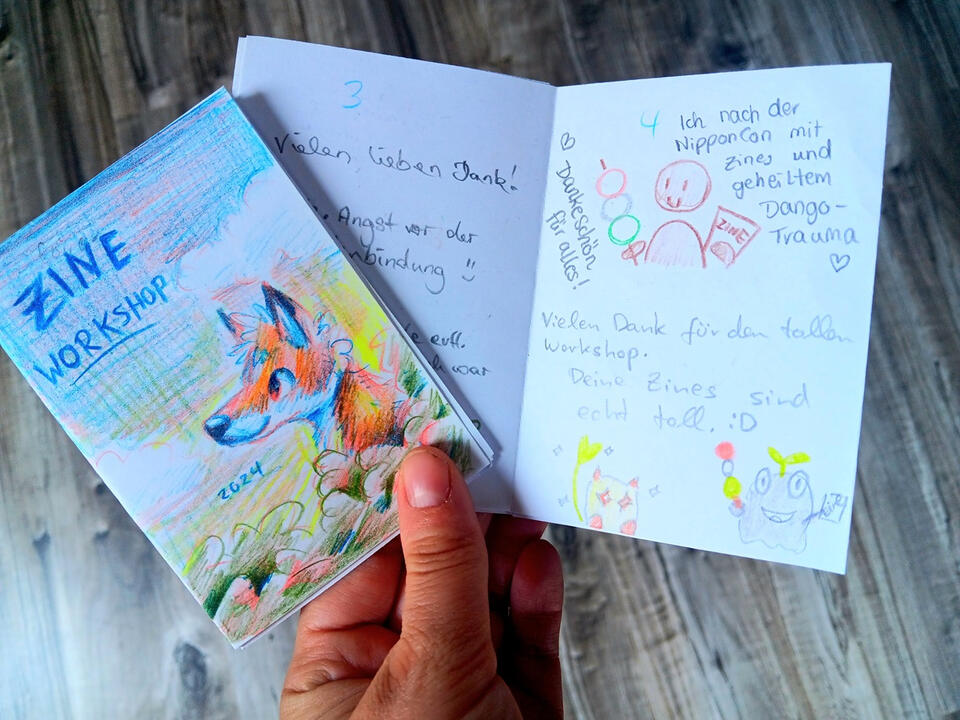 ZINE
WORKSHOP
2024
3
Vielen lieben Dank!
Angst vor der
nbindung
evtl.
war
4
Ich nach der
NipponCon mit
Zines und
geheiltem
Dango-
Trauma
Dankeschön
für alles!
ZINE
Vielen Dank für den tollen
Workshop.
Deine Zines sind
echt toll. :D